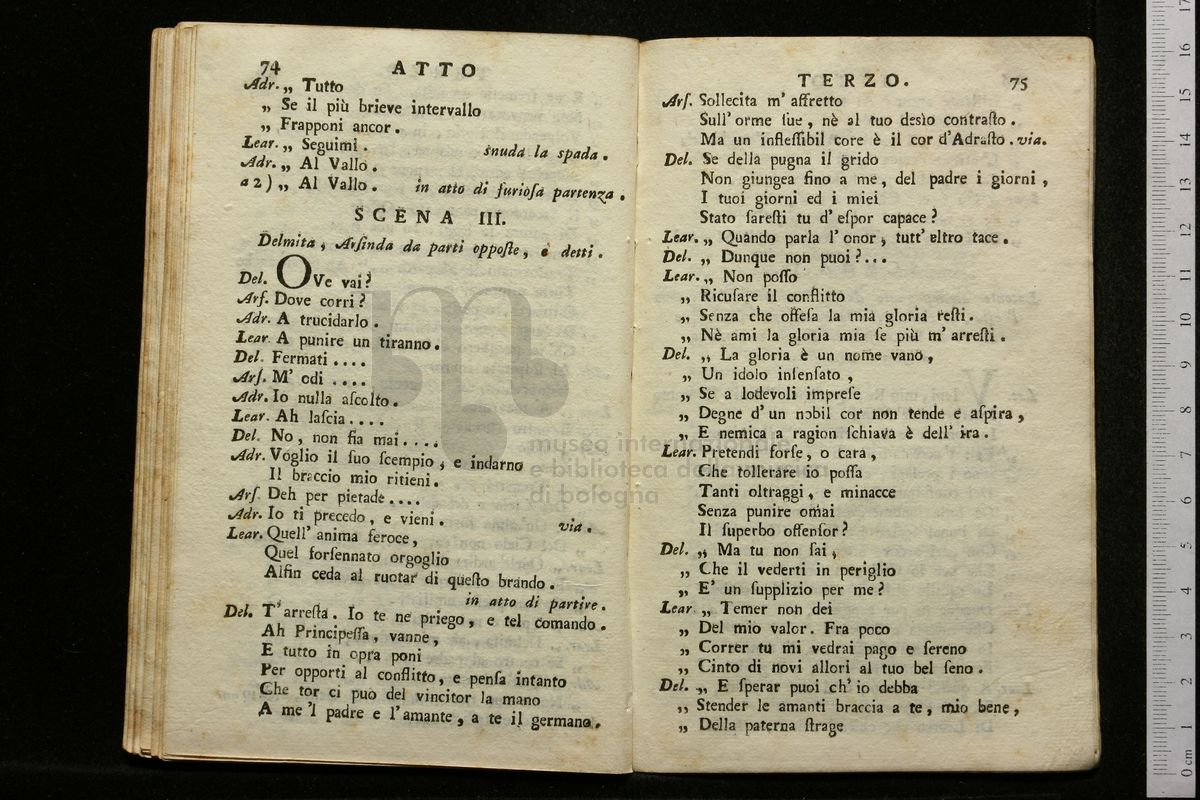 74 ATTO
Adr. „ Tutto
„ Se il più brieve intervallo
„ Frapponi ancor.
Lear. „ Seguimi. snuda la spada.
Adr. „ Al Vallo.
a 2) „ Al Vallo. in atto di furioſa partenza.
SCENA III.
Delmita, Arſinda da parti oppoſte, e detti.
Del. OVe vai?
Arſ. Dove corri?
Adr. A trucidarlo.
Lear. A punire un tiranno.
Del. Fermati ....
Arſ. M' odi ....
Adr. Io nulla aſcolto.
Lear. Ah laſcia ....
Del. No, non fia mai....
Adr. Voglio il ſuo ſcempio, e indarno
Il braccio mio ritieni.
Arſ. Deh per pietade ....
Adr. Io ti precedo, e vieni. via.
Lear. Quell' anima feroce,
Quel forſennato orgoglio
Alfin ceda al ruotar di queſto brando.
in atto di partire.
Del. T' arreſta. Io te ne priego, e tel comando.
Ah Principeſſa, vanne,
E tutto in opra poni
Per opporti al conflitto, e penſa intanto
Che tor ci può del vincitor la mano
A me 'l padre e l' amante, a te il germano.
TERZO. 75
Arſ. Sollecita m' affretto
Sull' orme ſue, nè al tuo desìo contraſto.
Ma un infleſſibil core è il cor d' Adraſto. via.
Del. Se della pugna il grido
Non giungea fino a me, del padre i giorni,
I tuoi giorni ed i miei
Stato ſareſti tu d' eſpor capace?
Lear. „ Quando parla l' onor, tutt' altro tace.
Del. „ Dunque non puoi?...
Lear. „ Non poſſo
„ Ricuſare il conflitto
„ Senza che offeſa la mia gloria reſti.
„ Nè ami la gloria mia ſe più m' arreſti.
Del. „ La gloria è un nome vano,
„ Un idolo inſenſato,
„ Se a lodevoli impreſe
„ Degne d' un nobil cor non tende e aſpira,
„ E nemica a ragion ſchiava è dell' ira.
Lear. Pretendi forſe, o cara,
Che tollerare io poſſa
Tanti oltraggi, e minacce
Senza punire omai
Il ſuperbo offenſor?
Del. „ Ma tu non ſai,
„ Che il vederti in periglio
„ E' un ſupplizio per me?
Lear „ Temer non dei
„ Del mio valor. Fra poco
„ Correr tu mi vedrai pago e ſereno
„ Cinto di novi allori al tuo bel ſeno.
Del. „ E ſperar puoi ch' io debba
„ Stender le amanti braccia a te, mio bene,
„ Della paterna ſtrage
museo internazionale
e biblioteca della musica
di bologna
0 cm 1 2 3 4 5 6 7 8 9 10 11 12 13 14 15 16 17